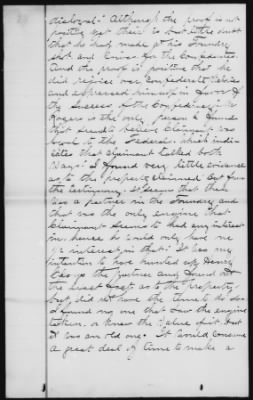 disloyal." Although the proof is not
positive yet there is but little doubt
that he had made at his foundry
shot and for the Confederates.
And the proof is positive that he
did rejoice over Confederate Victories
and expressed himself in favor of
the success of the Confederacy. Mr
Rogers is the only person I found
that seemed believe Claimant was
loyal to the Federals. which indi-
cates that claimant talked both
ways. I found very little evidence
as to the property claimed but from
the testimony. It seems that there
was a partner in the foundry and
that was the only engine that
Claimant seemed to had any interest
in. hence he would only have an
interest in that. It was my
intention to have hunted up Henry
the partner and found out
the exact facts as to the property,
but did not have the time to do so.
I found no one that saw the engine
taken, or knew the value of it. but
it was an old one. It would consume
a great deal of time to make a